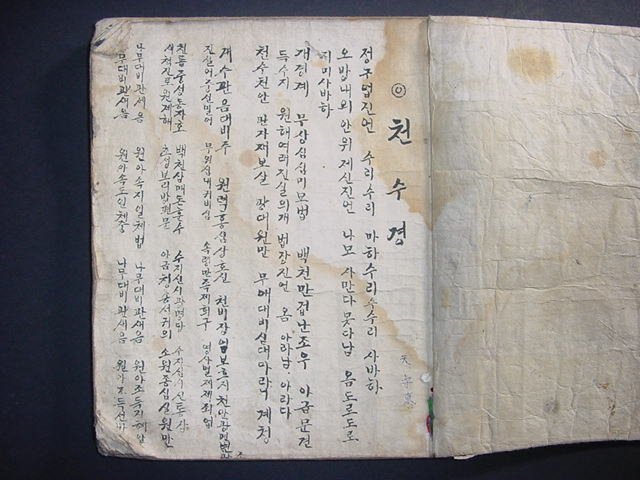 ◎ 천수경
정구업진언 수리수리 마하수리 수수리 사바하
오방내외 안위제신진언 나모 사만다 못다남 옴 도로도로
지미사바하
개경계 무상심심미묘법 백천만겁난조우 아금문견
득수지 원해여래진실의 개법장진언 옴 아라남 아라다
천수천안 관자재보살 광대원만 무애대비심대다라니 계청
계수관음대비주 원력홍심상호신 천비장엄보호지 천안광명변관
진실어중선밀어 무위심내기비심 속령만족제희구 영사멸제제죄업
천룡중성동자호 백천삼매돈훈수 수지신시광명당 수지심시신통장
세척진로원제해 초증보리방편문 아금칭송서귀의 소원종심실원만
나무대비관세음 원아속지일체법 나무대비관세음 원아조득지혜안
나무대비관세음 원아속도일체중 나무대비관세음 원아조득선방